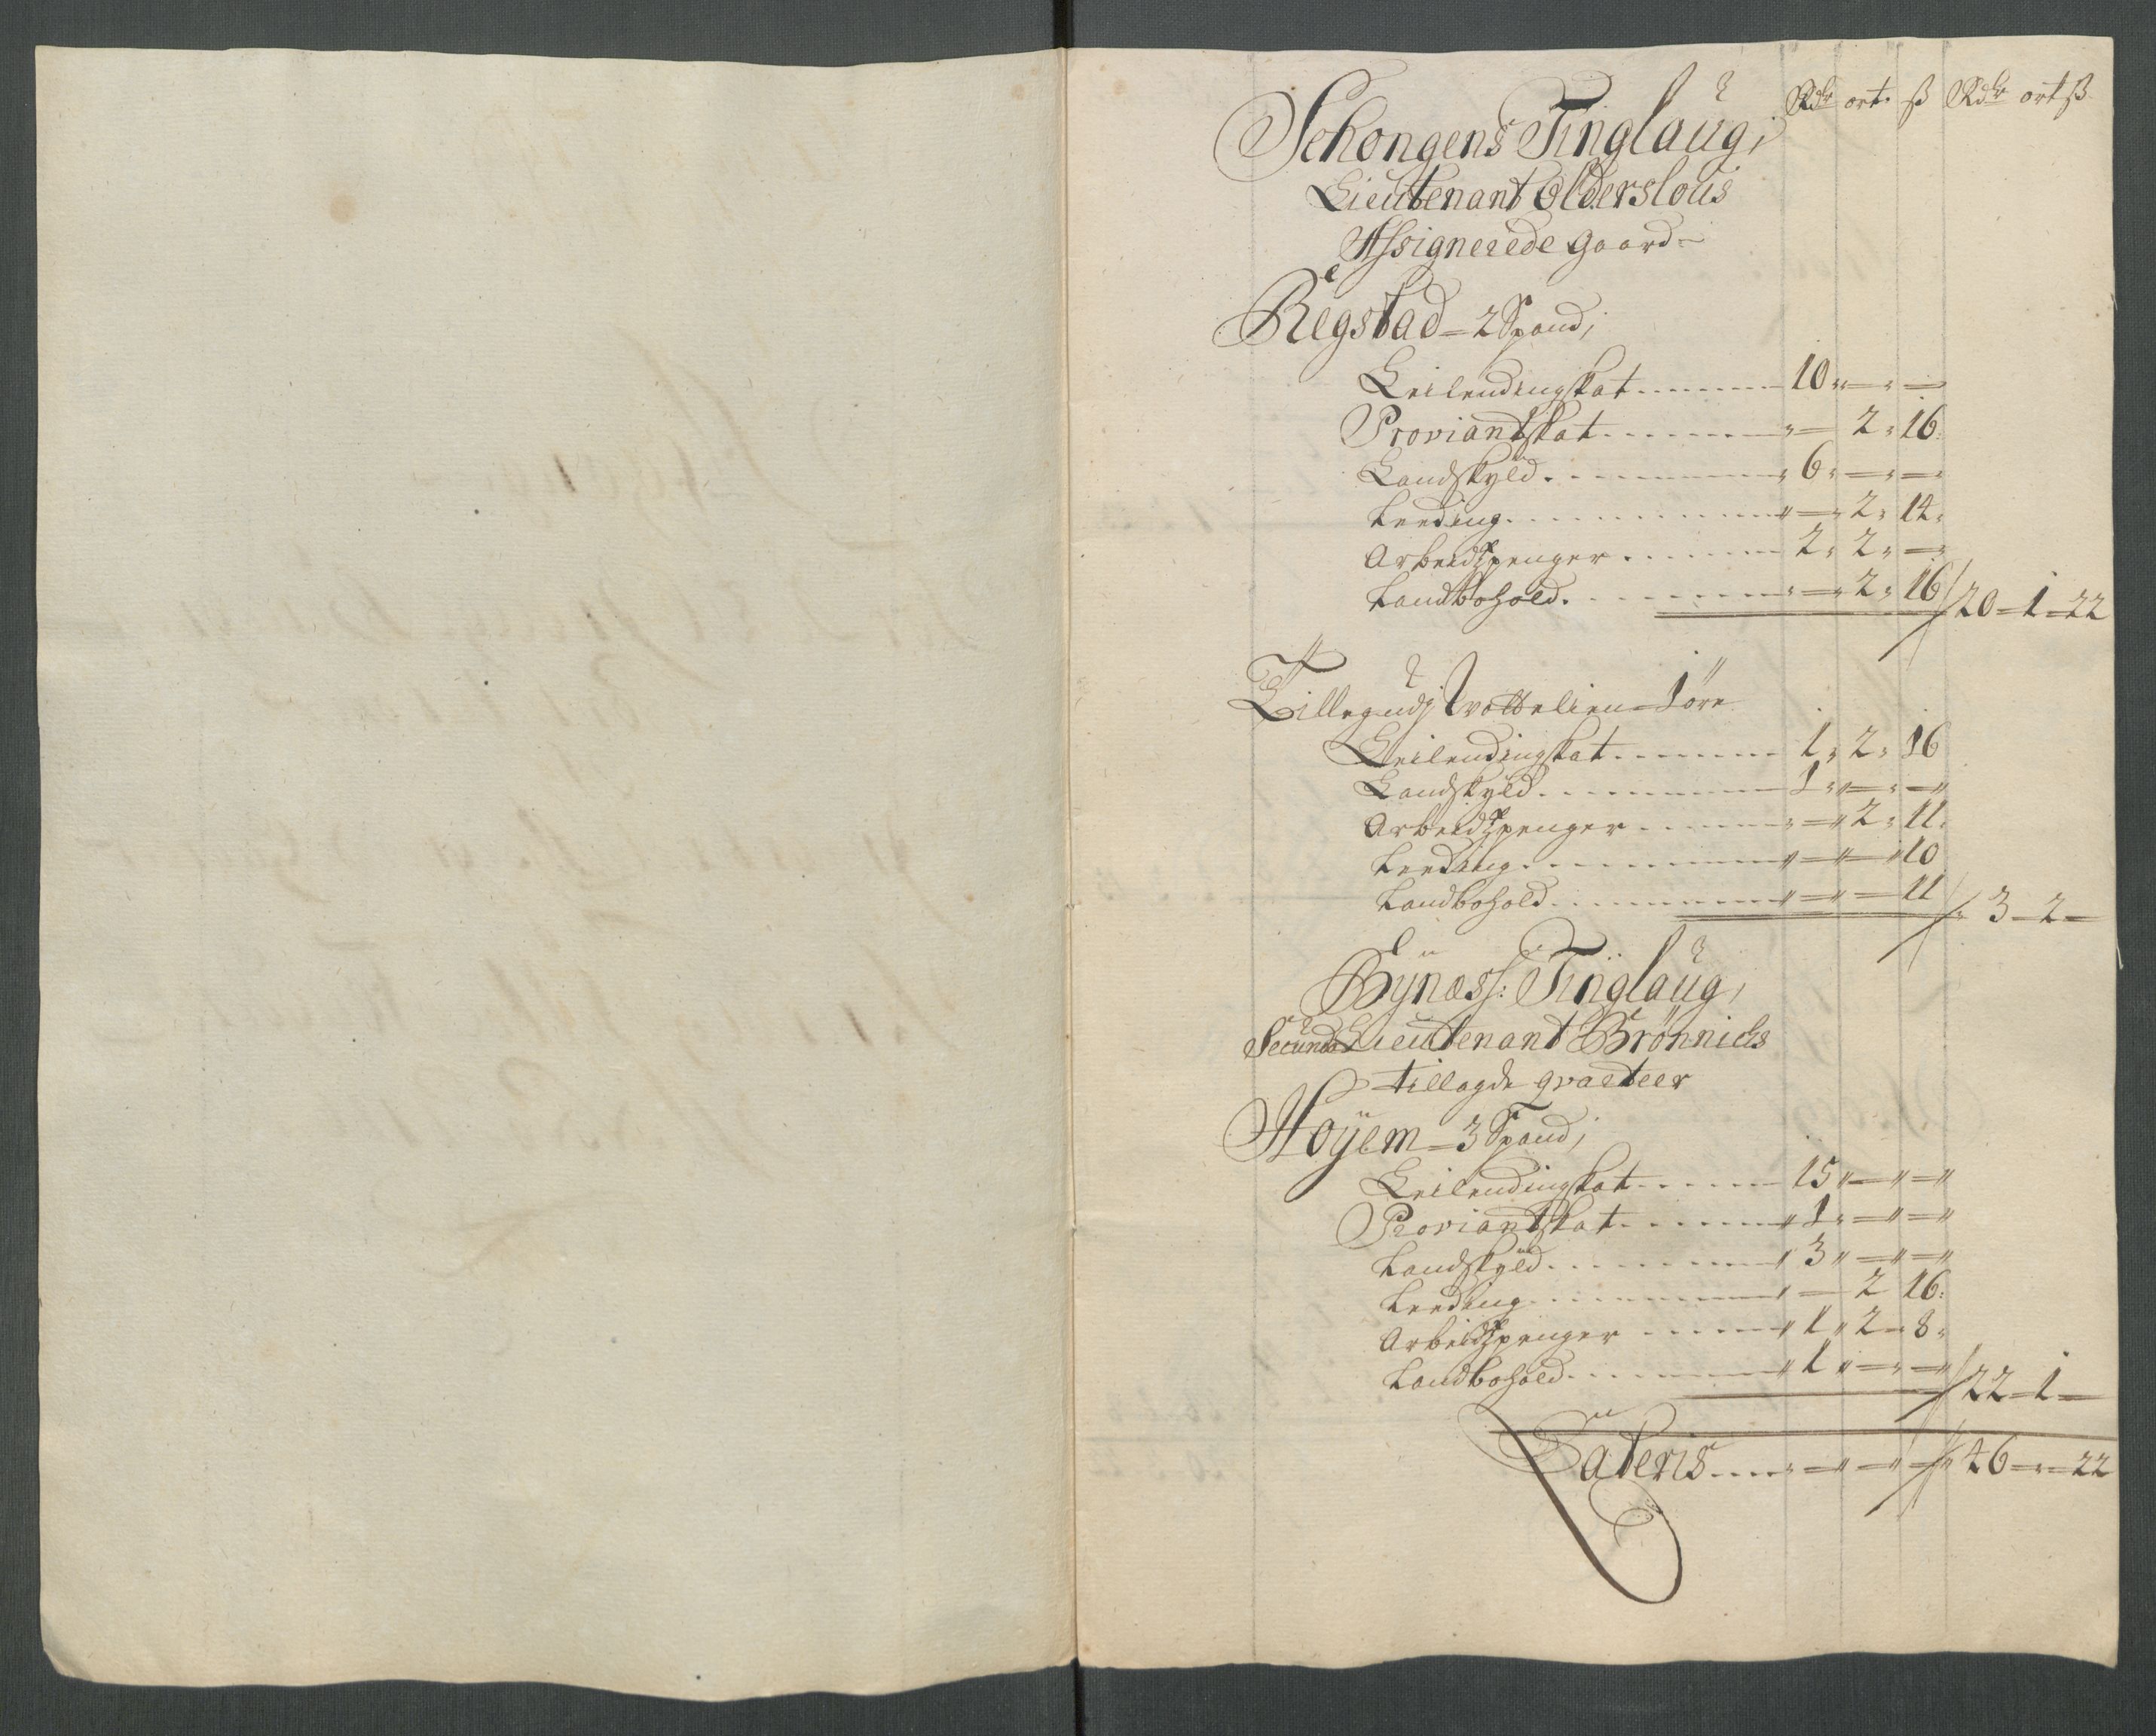 Rdr ort. ß Rdr ort ß
Schongens Tinglaug,
Lieutenant Olderslous
Assignerede Gaard
Regstad 2 Spand,
Leilendingskat 10
Proviantskat 2 16
Landskyld 6
Leeding 2 14
Arbeidspenger 2 2
Landbohold 2 16 / 20 1 22
Tillegudj 1 öre
Leilendingskat 1 2 16
Landskyld 1
Arbeidspenger 2 11
Leeding 10
Landbohold 11 / 3 2
Bynæss: Tinglaug,
Secund Lieutenant Brönnichs
tillagde qvarteer
Hoyem 3 Spand,
Leilendingskat 15
Proviantskat 1
Landskyld 3
Leeding 2 16
Arbeidspenger 1 2 8
Landbohold 1 / 22 1
Lateris 46 22